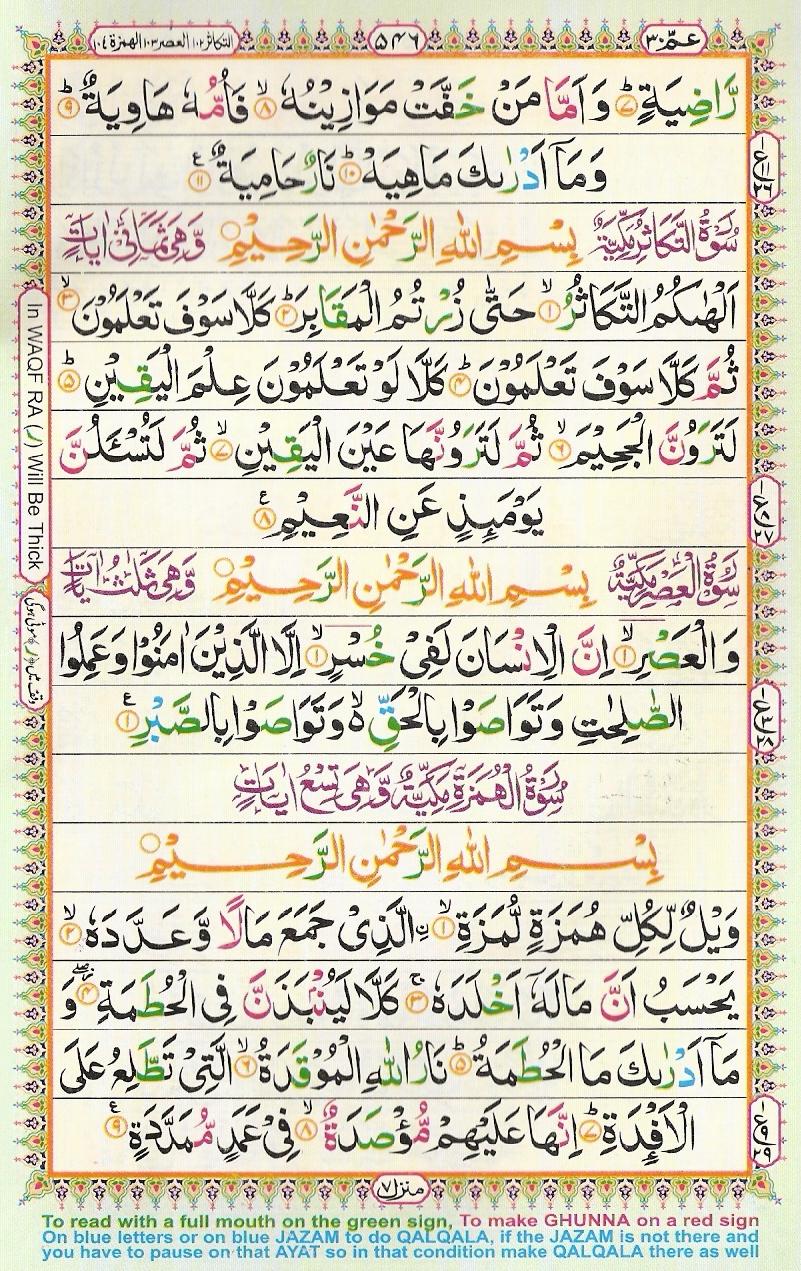 عمّ ٣٠
٥٤٦
التكاثر ١٠٢ العصر ١٠٣ الهمزة ١٠٤
رَّاضِيَةٍ ؕ﴿۷﴾ وَ اَمَّا مَنْ خَفَّتْ مَوَازِيْنُهٗ ۙ﴿۸﴾ فَاُمُّهٗ هَاوِيَةٌ ؕ﴿۹﴾
وَمَاۤ اَدْرٰىكَ مَاهِيَهْ ؕ﴿۱۰﴾ نَارٌ حَامِيَةٌ ﴿۱۱﴾ ع
سُوْرَةُ التَّكَاثُرِ مَكِّيَّةٌ بِسْمِ اللّٰهِ الرَّحْمٰنِ الرَّحِيْمِ وَّهِىَ ثَمَانِىْ اٰيَاتٍ
اَلْهٰىكُمُ التَّكَاثُرُ ۙ﴿۱﴾ حَتّٰى زُرْتُمُ الْمَقَابِرَ ؕ﴿۲﴾ كَلَّا سَوْفَ تَعْلَمُوْنَ ۙ﴿۳﴾
ثُمَّ كَلَّا سَوْفَ تَعْلَمُوْنَ ؕ﴿۴﴾ كَلَّا لَوْ تَعْلَمُوْنَ عِلْمَ الْيَقِيْنِ ؕ﴿۵﴾
لَتَرَوُنَّ الْجَحِيْمَ ۙ﴿۶﴾ ثُمَّ لَتَرَوُنَّهَا عَيْنَ الْيَقِيْنِ ۙ﴿۷﴾ ثُمَّ لَتُسْـَٔلُنَّ
يَوْمَىِٕذٍ عَنِ النَّعِيْمِ ﴿۸﴾ ع
سُوْرَةُ الْعَصْرِ مَكِّيَّةٌ بِسْمِ اللّٰهِ الرَّحْمٰنِ الرَّحِيْمِ وَّهِىَ ثَلٰثُ اٰيَاتٍ
وَالْعَصْرِ ۙ﴿۱﴾ اِنَّ الْاِنْسَانَ لَفِىْ خُسْرٍ ۙ﴿۱﴾ اِلَّا الَّذِيْنَ اٰمَنُوْا وَعَمِلُوا
الصّٰلِحٰتِ وَتَوَاصَوْا بِالْحَقِّ ۙ۬ وَتَوَاصَوْا بِالصَّبْرِ ﴿۱﴾ ع
سُوْرَةُ الْهُمَزَةِ مَكِّيَّةٌ وَّهِىَ تِسْعُ اٰيَاتٍ
بِسْمِ اللّٰهِ الرَّحْمٰنِ الرَّحِيْمِ
وَيْلٌ لِّكُلِّ هُمَزَةٍ لُّمَزَةِ ۙ﴿۱﴾ ۨالَّذِىْ جَمَعَ مَالًا وَّعَدَّدَهٗ ۙ﴿۲﴾
يَحْسَبُ اَنَّ مَالَهٗۤ اَخْلَدَهٗ ۚ﴿۳﴾ كَلَّا لَيُنْۢبَذَنَّ فِى الْحُطَمَةِ ﴿۴﴾ وَ
مَاۤ اَدْرٰىكَ مَا الْحُطَمَةُ ؕ﴿۵﴾ نَارُ اللّٰهِ الْمُوْقَدَةُ ۙ﴿۶﴾ الَّتِىْ تَطَّلِعُ عَلَى
الْاَفْـِٕدَةِ ؕ﴿۷﴾ اِنَّهَا عَلَيْهِمْ مُّؤْصَدَةٌ ۙ﴿۸﴾ فِىْ عَمَدٍ مُّمَدَّدَةٍ ﴿۹﴾ ع
In WAQF RA (ر) Will Be Thick
منزل ٧
To read with a full mouth on the green sign, To make GHUNNA on a red sign
On blue letters or on blue JAZAM to do QALQALA, if the JAZAM is not there and
you have to pause on that AYAT so in that condition make QALQALA there as well